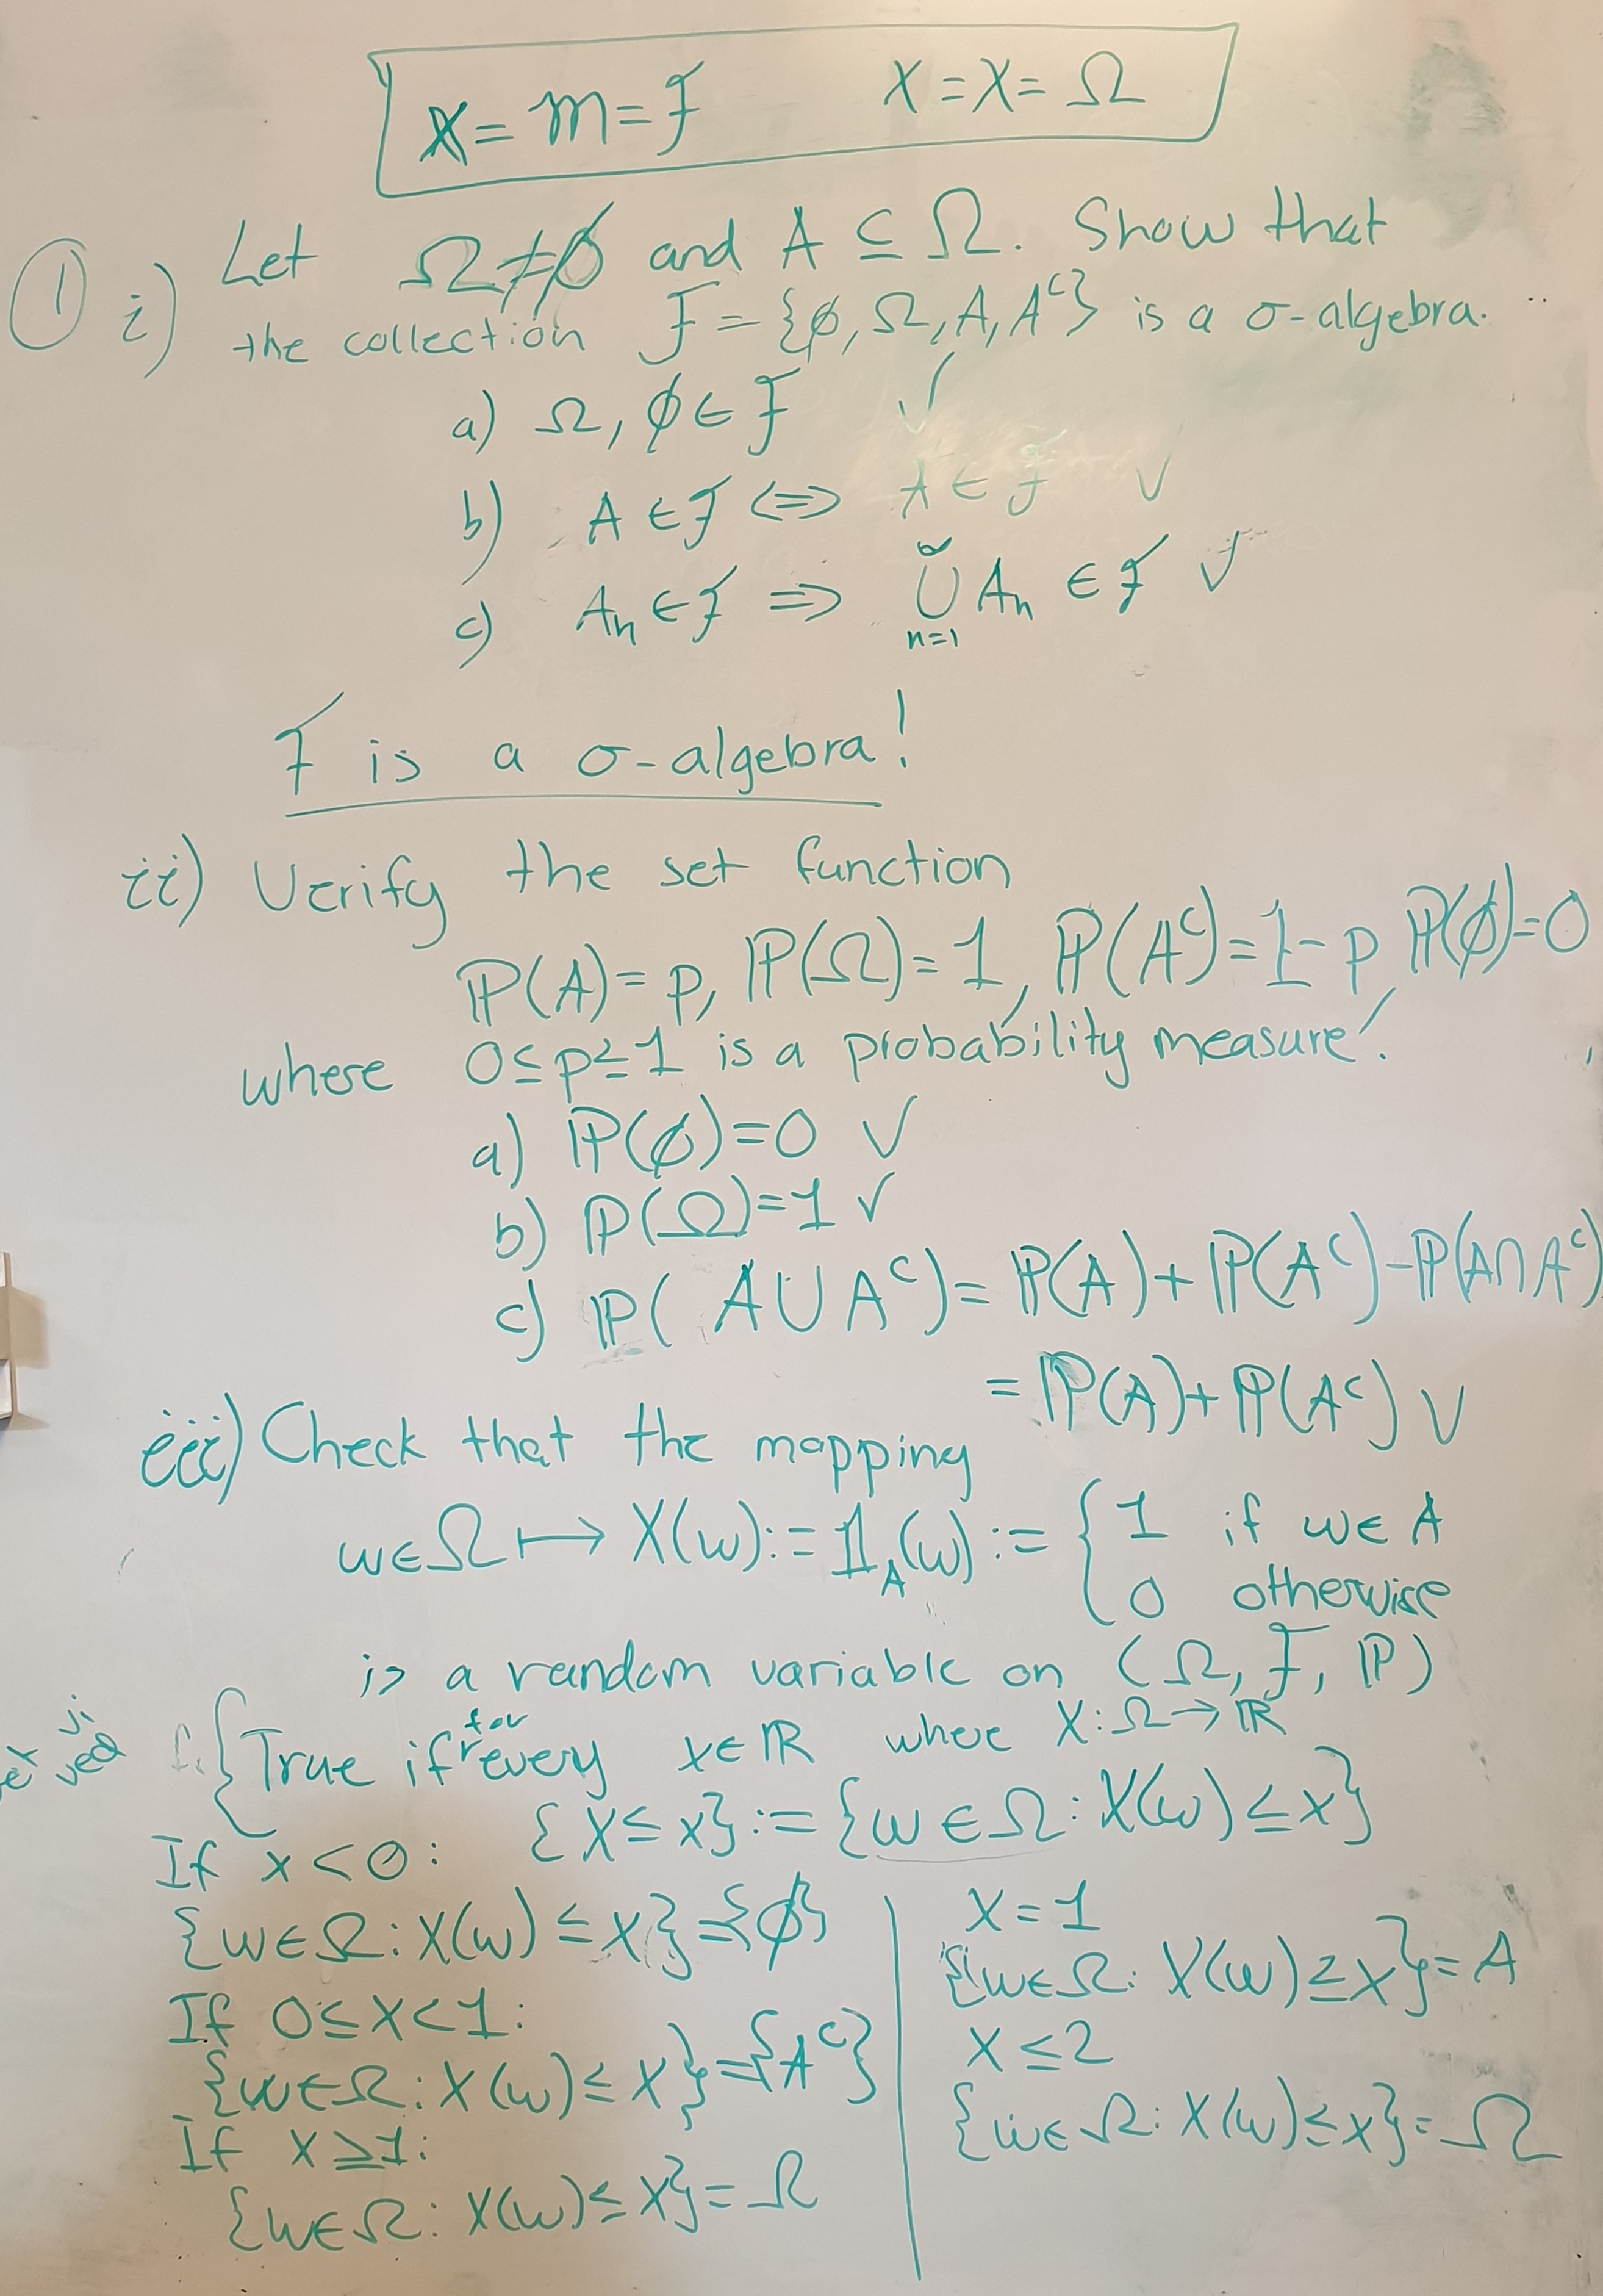 X = m = F    X = X = Ω
① i) Let Ω ≠ ∅ and A ⊆ Ω. Show that
the collection F = {∅, Ω, A, Aᶜ} is a σ-algebra.
a) Ω, ∅ ∈ F ✓
b) A ∈ F ⟺ A ∈ F ✓
c) Aₙ ∈ F ⟹ ∞⋃n=1 Aₙ ∈ F ✓
F is a σ-algebra!
ii) Verify the set function
ℙ(A) = p, ℙ(Ω) = 1, ℙ(Aᶜ) = 1 - p, ℙ(∅) = 0
where 0 ≤ p ≤ 1 is a probability measure!
a) ℙ(∅) = 0 ✓
b) ℙ(Ω) = 1 ✓
c) ℙ(A ∪ Aᶜ) = ℙ(A) + ℙ(Aᶜ) - ℙ(A ∩ Aᶜ)
= ℙ(A) + ℙ(Aᶜ) ✓
iii) Check that the mapping
ω ∈ Ω ↦ X(ω) := 𝟙_A(ω) := { 1 if ω ∈ A
0 otherwise
is a random variable on (Ω, F, ℙ)
{ True if for every x ∈ ℝ where X: Ω → ℝ
{X ≤ x} := {ω ∈ Ω : X(ω) ≤ x}
If x < 0:
{ω ∈ Ω : X(ω) ≤ x} = {∅}
If 0 ≤ x < 1:
{ω ∈ Ω : X(ω) ≤ x} = {Aᶜ}
If x ≥ 1:
{ω ∈ Ω : X(ω) ≤ x} = Ω
X = 1
{ω ∈ Ω : X(ω) ≥ x} = A
X ≤ 2
{ω ∈ Ω : X(ω) ≤ x} = Ω